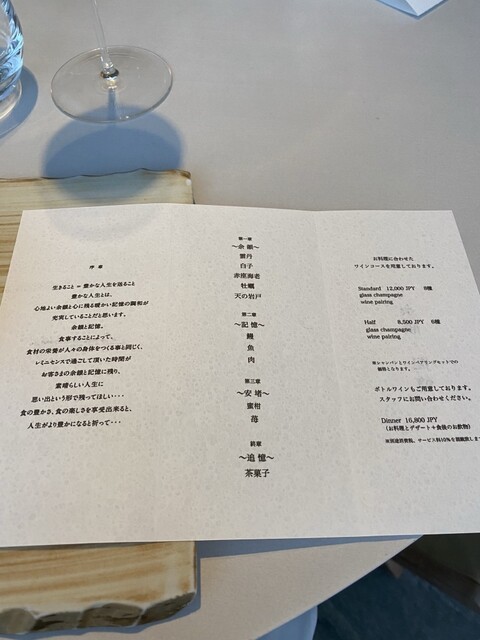 序章
生きること = 豊かな人生を送ること
豊かな人生とは、
心地よい余韻と心に残る暖かい記憶の調和が
充実していることだと思います。
余韻と記憶。
食事することによって、
食材の栄養が人々の身体をつくる事と同じく、
レミニセンスで過ごして頂いた時間が
お客さまの余韻と記憶に残り、
素晴らしい人生に
思い出という形で残ってほしい・・・
食の豊かさ、食の楽しさを享受出来ると、
人生がより豊かになると祈って・・・
第一章
～余韻～
雲丹
白子
赤座海老
牡蠣
天の岩戸
第二章
～記憶～
鰻
魚
肉
第三章
～安堵～
蜜柑
苺
終章
～追憶～
茶菓子
お料理に合わせた
ワインコースを用意しております。
Standard 12,000 JPY 8種
glass champagne
wine pairing
Half 8,500 JPY 6種
glass champagne
wine pairing
※シャンパンとワインペアリングセットでの
価格となります。
ボトルワインもご用意しております。
スタッフにお問い合わせください。
Dinner 16,800 JPY
(お料理とデザート+食後のお飲物)
※別途消費税、サービス料10%を頂戴致しま